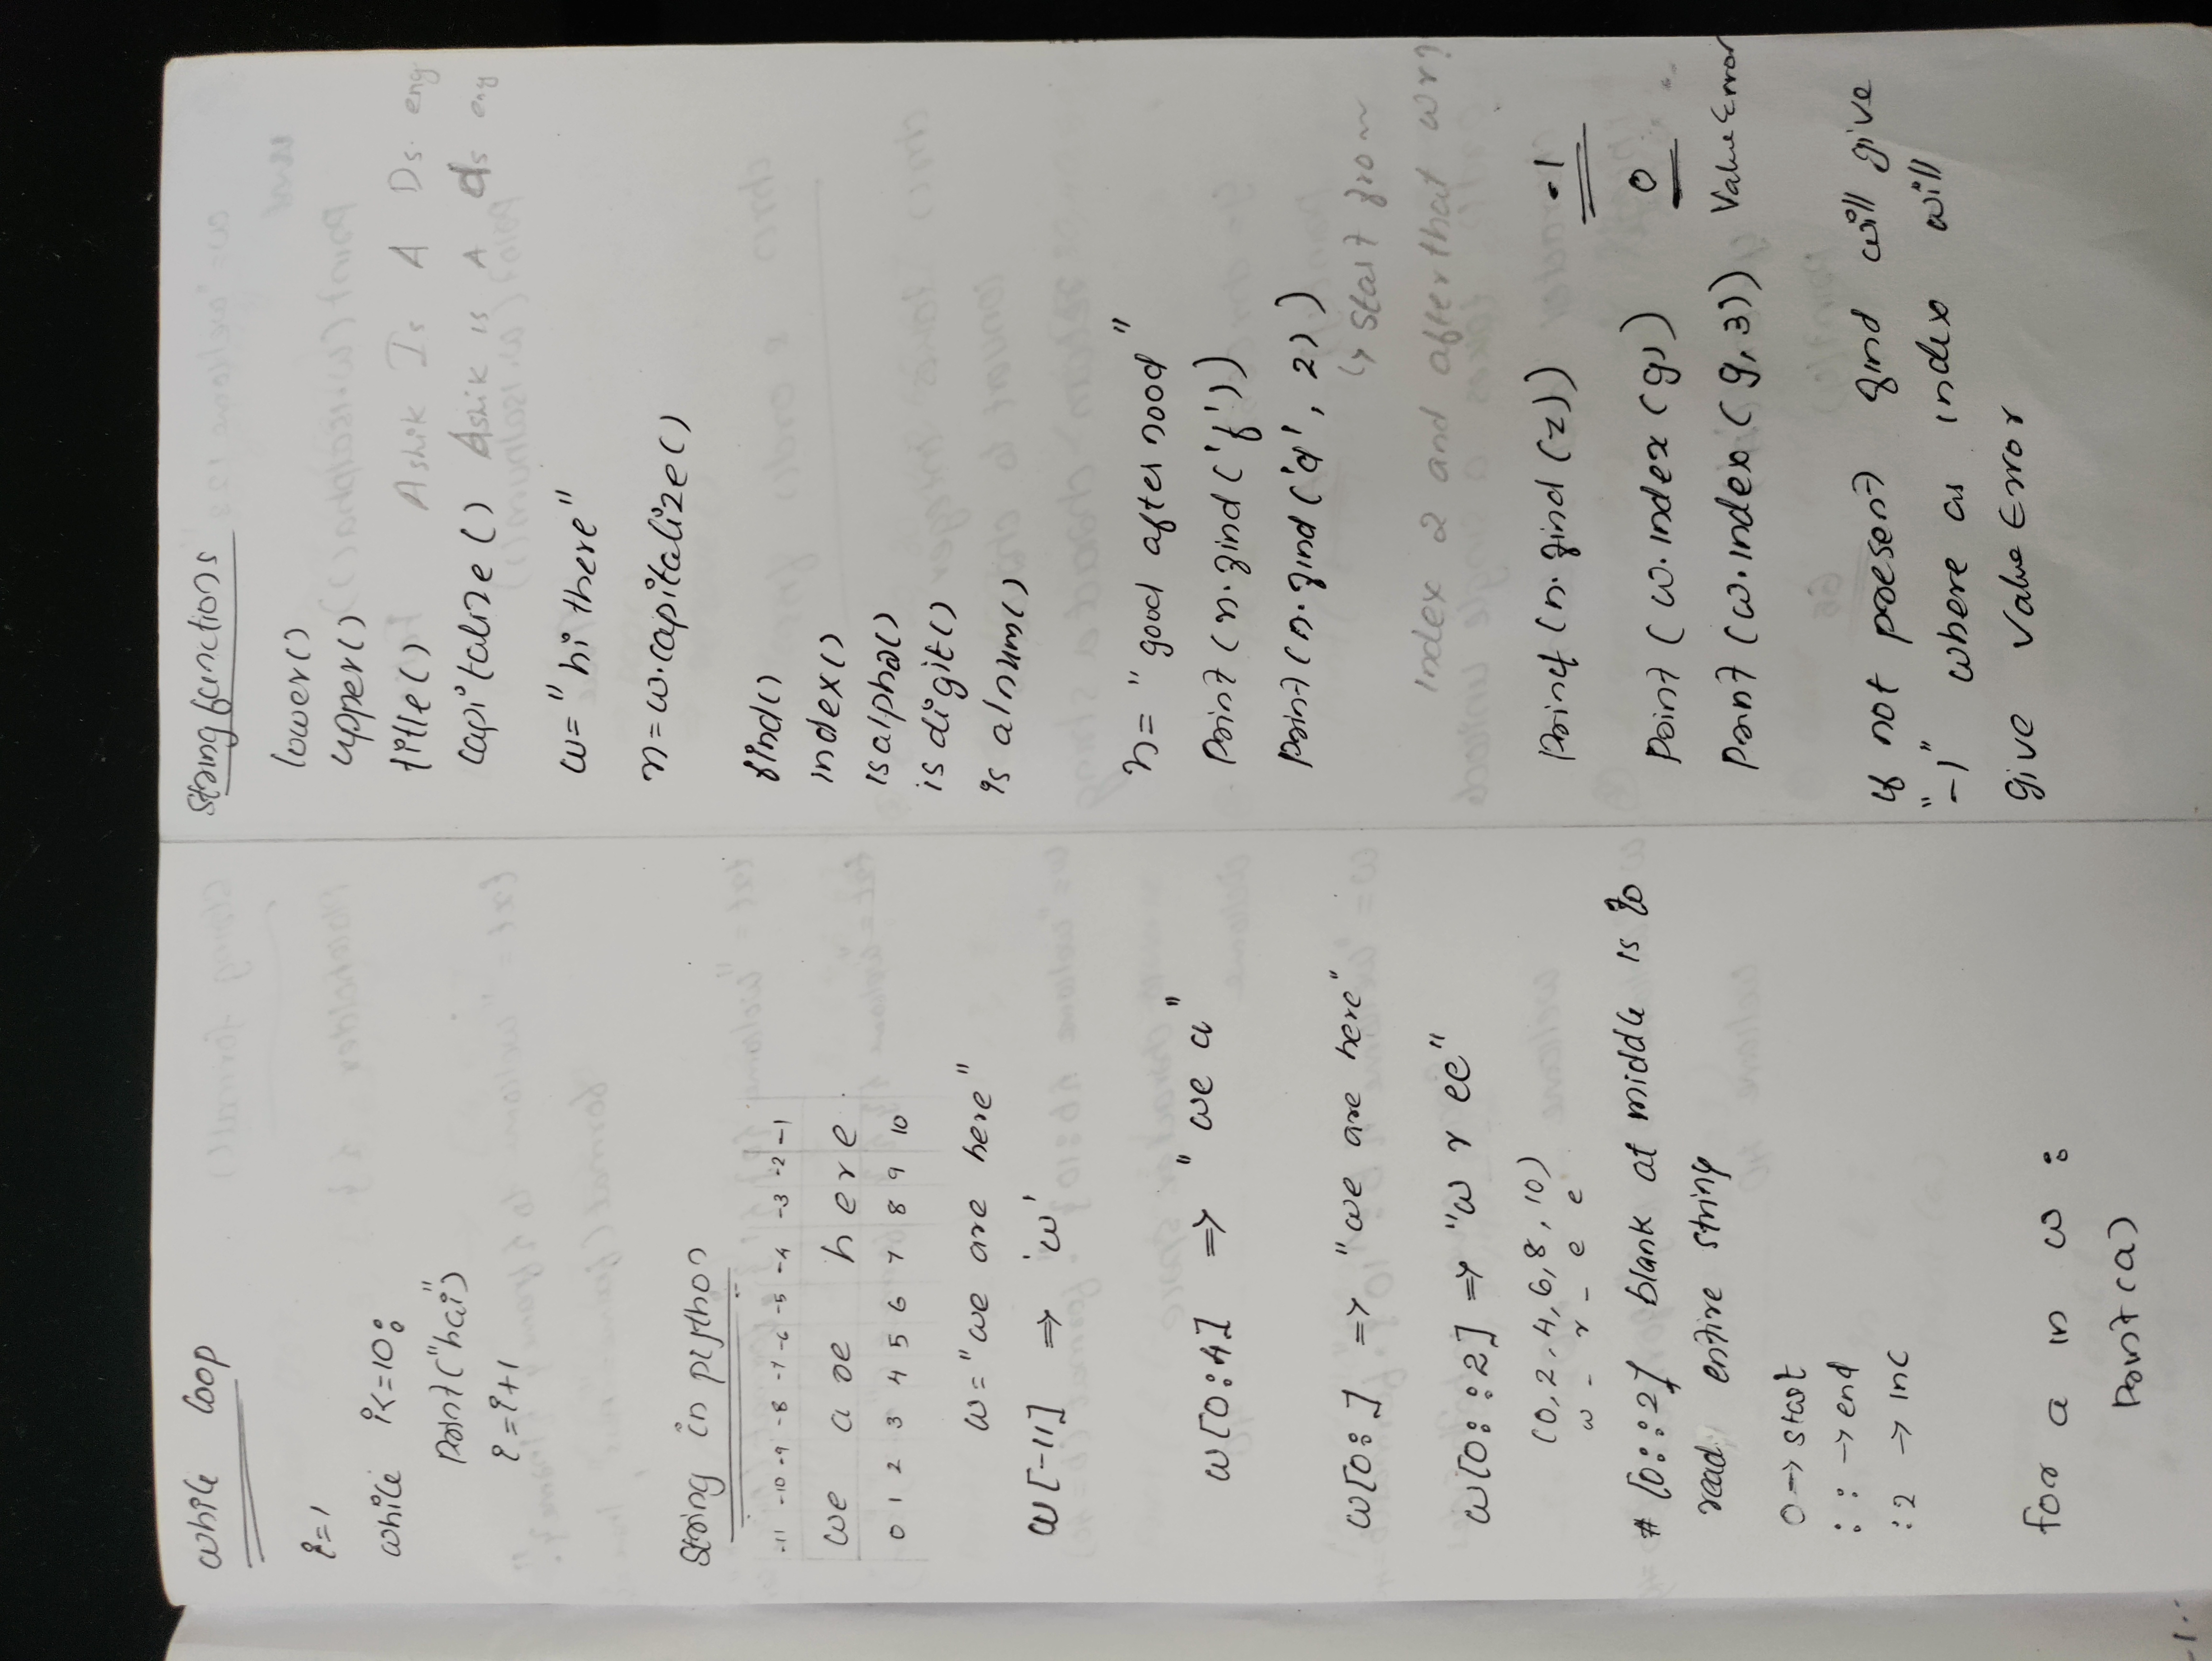 while loop
i=1
while i<=10:
print("hai")
i=i+1
String in python
-11 -10 -9 -8 -7 -6 -5 -4 -3 -2 -1
we are here
0 1 2 3 4 5 6 7 8 9 10
w="we are here"
w[-11] => 'w'
w[0:4] => "we a"
w[0:] => "we are here"
w[0::2] => "w r ee"
(0,2,4,6,8,10)
w - r - e e
# [0::2] blank at middle is to
read entire string
0 -> start
: : -> end
:2 -> inc
for a in w :
print(a)
String functions
lower()
upper()
title() Ashik Is A Ds eng
capitalize() Ashik is A ds eng
w="hi there"
n=w.capitalize()
find()
index()
isalpha()
is digit()
is alnum()
n= "good after nood"
Print (n.find('f'))
Print (n.find('d', 2))
↳ start from
index 2 and after that
Print (n.find (z)) -1
Print (w.index (g)) 0
Print (w.index (g,3)) Value Error
if not present find will give
"-1" where as index will
give Value Error